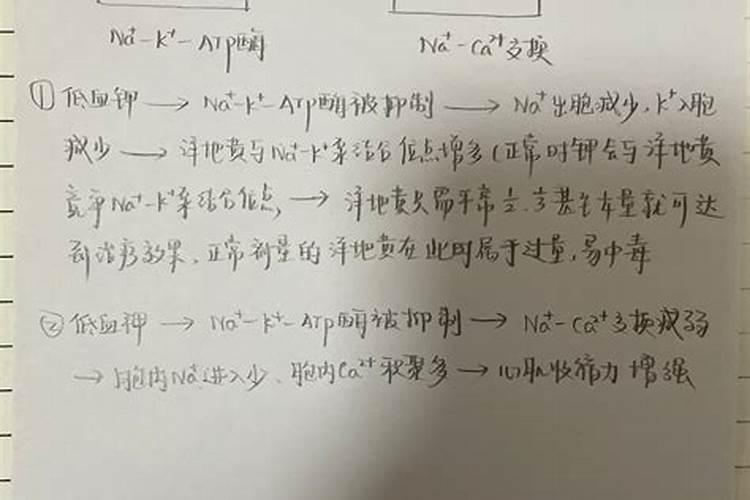 Na⁺-K⁺-ATP酶
Na⁺-Ca²⁺交换
①低血钾→Na⁺-K⁺-ATP酶被抑制→Na⁺出胞减少,K⁺入胞
减少→洋地黄与Na⁺-K⁺泵结合位点增多(正常时钾会与洋地黄
竞争Na⁺-K⁺泵结合位点,→洋地黄只需平常½.⅓甚至本量就可达
到治疗效果,正常剂量的洋地黄在此时属于过量,易中毒
②低血钾→Na⁺-K⁺-ATP酶被抑制→Na⁺-Ca²⁺交换减弱
→胞内Na⁺进入少、胞内Ca²⁺积聚多→心肌收缩力增强